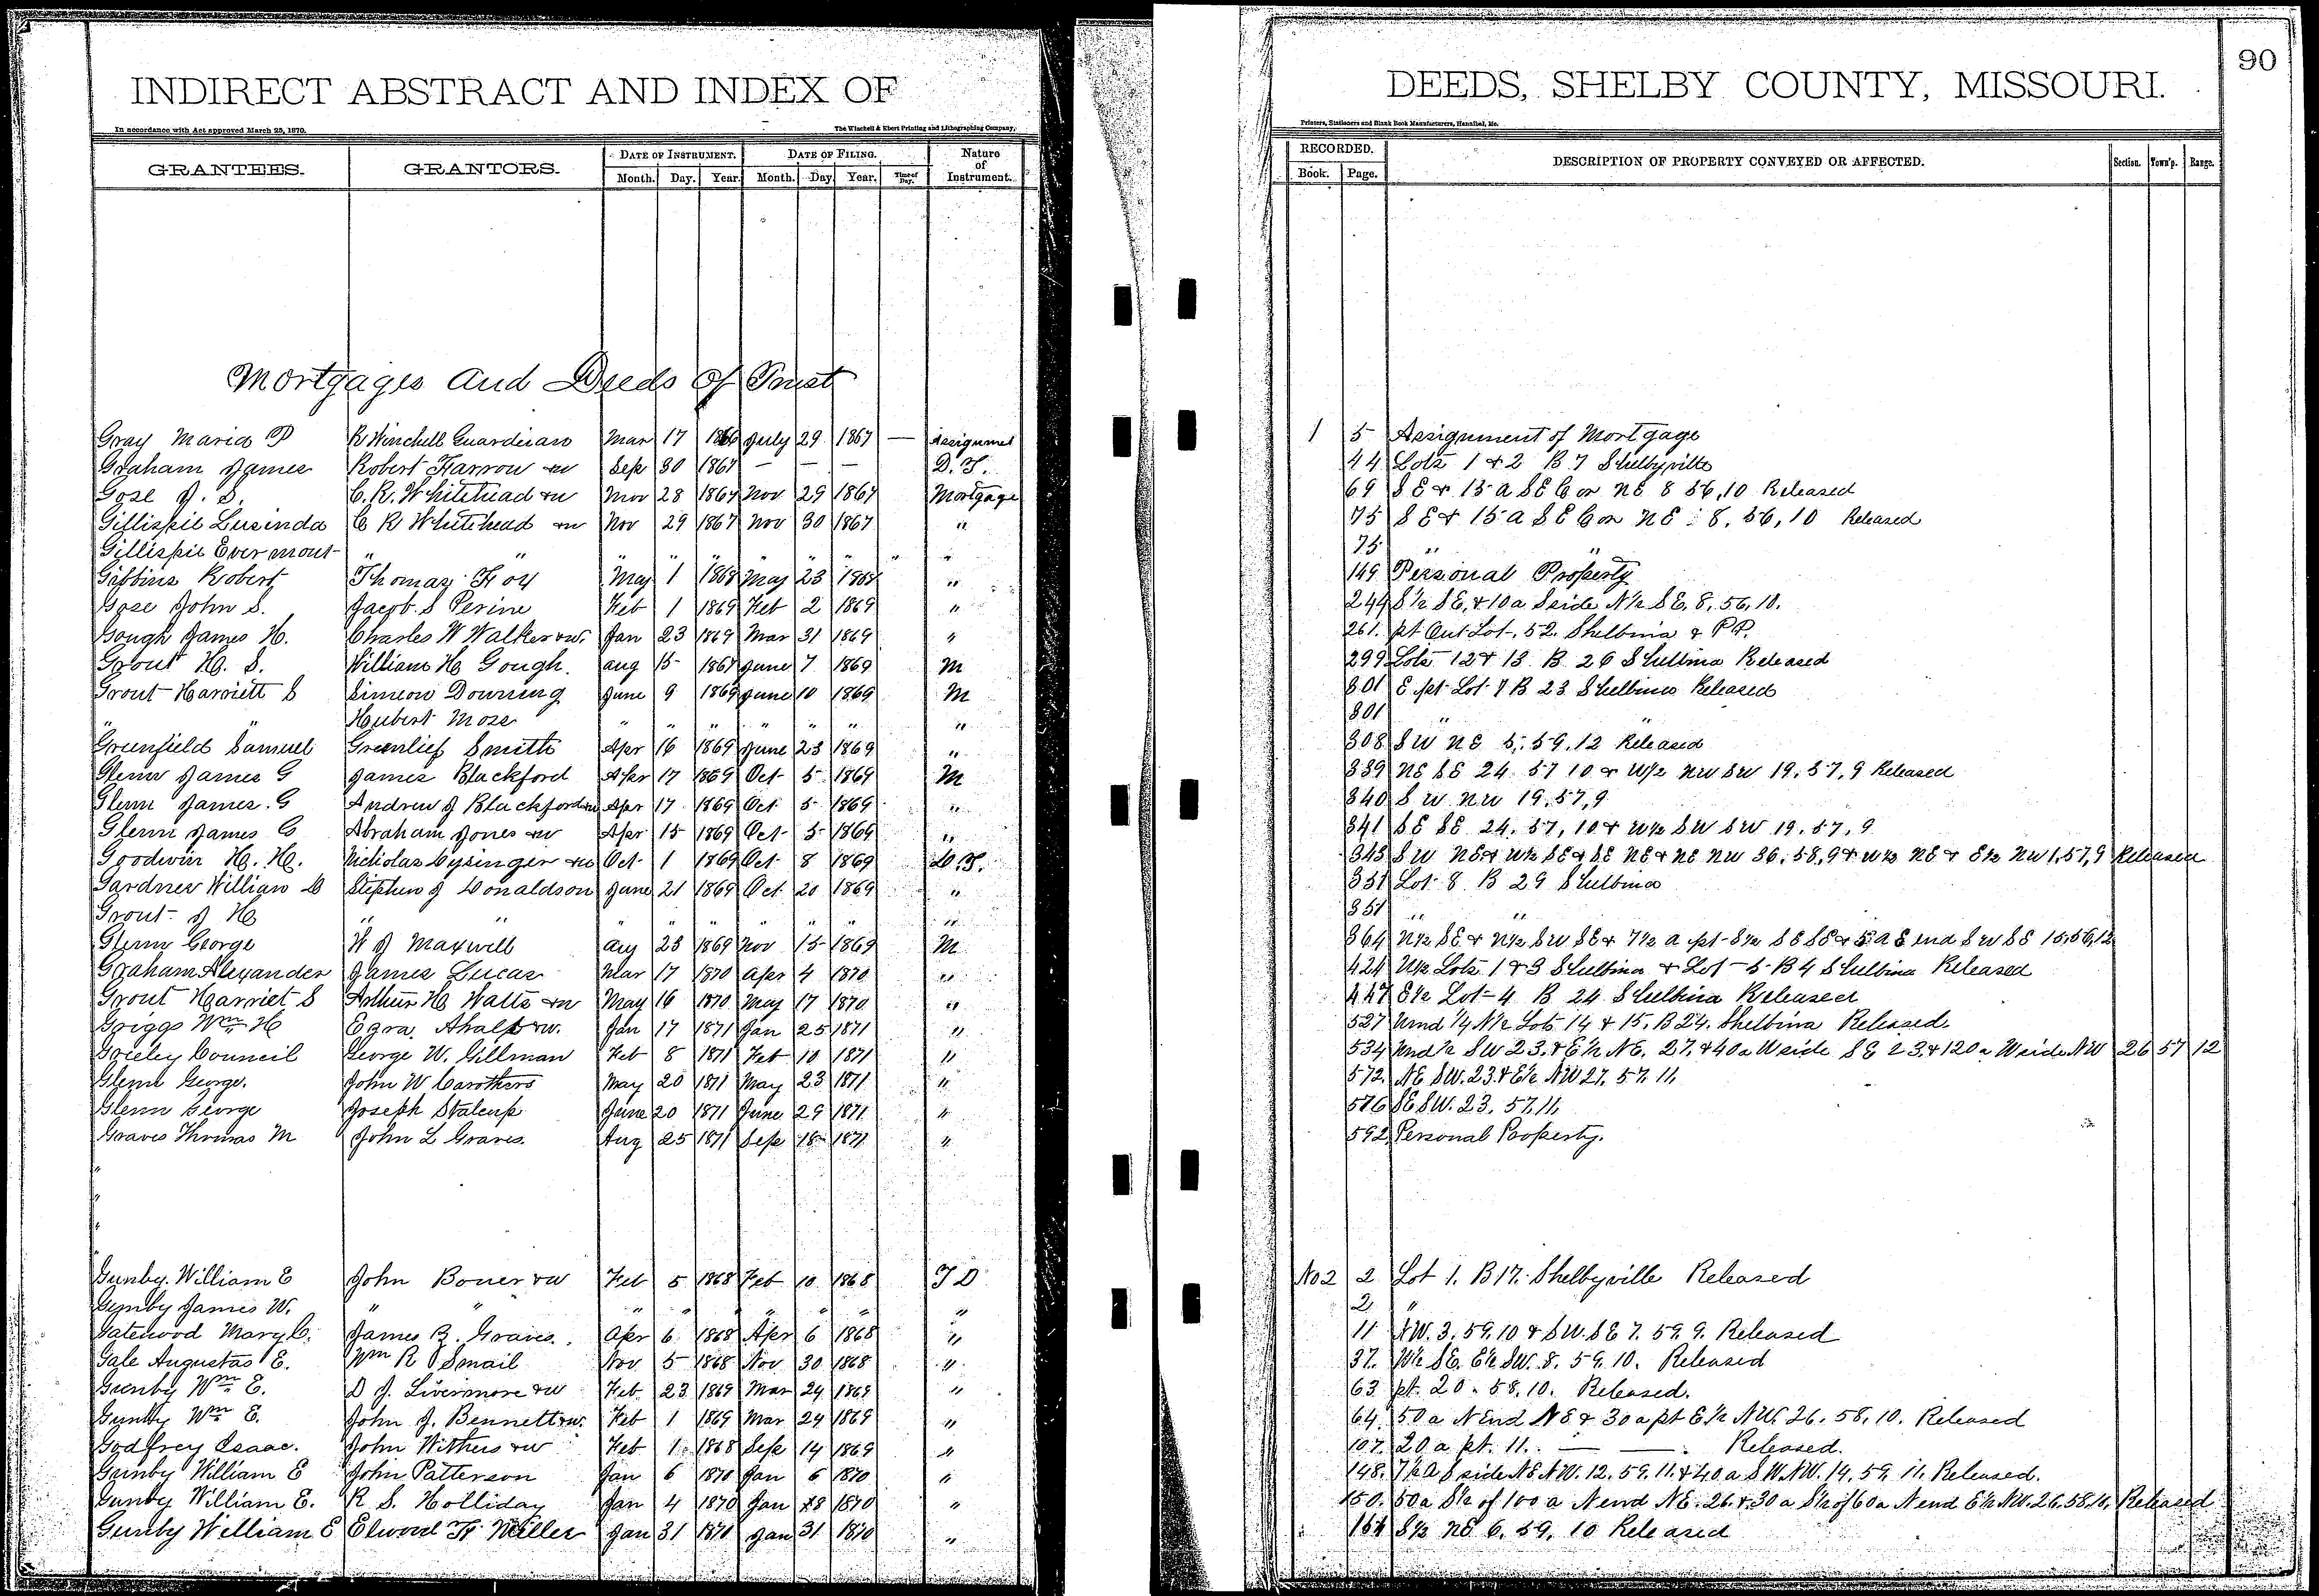 INDIRECT ABSTRACT AND INDEX OF DEEDS, SHELBY COUNTY, MISSOURI. 90
In accordance with Act approved March 25, 1870. The Winchell & Ebert Printing and Lithographing Company, Printers, Stationers and Blank Book Manufacturers, Hannibal, Mo.
GRANTEES. GRANTORS. DATE OF INSTRUMENT. DATE OF FILING. Nature of Instrument. RECORDED. DESCRIPTION OF PROPERTY CONVEYED OR AFFECTED. Section. Town'p. Range.
Month. Day. Year. Month. Day. Year. Time of Day. Book. Page.
Mortgages and Deeds of Trust
Gray Maria P R Winchell Guardian Mar 17 1866 July 29 1867 — Assignmet 1 5 Assignment of Mortgage
Graham James Robert Farrow &w Sep 30 1867 — — — D. T. 44 Lots 1 & 2 B 7 Shelbyville
Gose J. S. C. R. Whitehead &w Nov 28 1867 Nov 29 1867 Mortgage 69 S E & 15 a S E Cor N E 8 56, 10 Released
Gillispie Lusinda C R Whitehead &w Nov 29 1867 Nov 30 1867 " 75 S E & 15 a S E Cor N E 8, 56, 10 Released
Gillispie Evermont " " " " " " " " " " 75 " "
Gibbins Robert Thomas Foy May 1 1868 May 23 1868 " 149 Personal Property
Gose John S. Jacob S Perine Feb 1 1869 Feb 2 1869 " 244 S½ SE. & 10 a S side N½ S E. 8, 56, 10.
Gough James H. Charles W Walker &w. Jan 23 1869 Mar 31 1869 " 261. pt Out Lot, 52. Shelbina & P.P.
Grout H. S. William H Gough. Aug 15 1867 June 7 1869 M 299 Lots 12 & 13 B 26 Shelbina Released
Grout Harriett S Simeon Downing June 9 1869 June 10 1869 M 301 E pt Lot 7 B 23 Shelbina Released
" " Hubert Mose " " " " " " " 301 " "
Greenfield Samuel Greenlief Smith Apr 16 1869 June 23 1869 " 308 S W N E 5, 59, 12 Released
Glenn James G James Blackford Apr 17 1869 Oct 5 1869 M 339 NE SE 24 57 10 & W½ NW SW 19, 57, 9 Released
Glenn James. G Andrew J Blackford &w Apr 17 1869 Oct 5 1869 " 340 S W NW 19, 57, 9
Glenn James G Abraham Jones &w Apr 15 1869 Oct 5 1869 " 341 SE SE 24, 57, 10 & W½ SW SW 19. 57, 9
Goodwin H. H. Nicholas Cysinger &w Oct 1 1869 Oct 8 1869 D. T. 343 SW NE & W½ SE & SE NE & NE NW 36, 58, 9 & W½ NE & E½ NW 1, 57, 9 Released
Gardner William D Stephen J Donaldson June 21 1869 Oct 20 1869 " 351 Lot 8 B 29 Shelbina
Grout J H " " " " " " " " " 351 " "
Glenn George W J Maxwell Aug 23 1869 Nov 15 1869 M 364 N½ SE & N½ SW SE & 7½ a pt S½ SE SE & 5 a E end SW SE 15, 56, 12
Graham Alexander James Lucas Mar 17 1870 Apr 4 1870 " 424 W½ Lots 1 & 3 Shelbina & Lot 5 B 4 Shelbina Released
Grout Harriet S Arthur H Watts &w May 16 1870 May 17 1870 " 447 E½ Lot 4 B 24 Shelbina Released
Griggs Wm H Ezra Ahalt &w. Jan 17 1871 Jan 25 1871 " 527 Und ¼ N½ Lots 14 & 15, B 24. Shelbina Released.
Greeley Council George W. Gillman Feb 8 1871 Feb 10 1871 " 534 Und ½ SW 23, & E½ NE. 27, & 40 a W side SE 23, & 120 a W side NW 26 57 12
Glenn George. John W Carothers May 20 1871 May 23 1871 " 572. NE SW. 23. & E½ NW 27. 57. 11.
Glenn George Joseph Stalcup June 20 1871 June 29 1871 " 576 SE SW. 23. 57. 11,
Graves Thomas M John L Graves. Aug 25 1871 Sep 18 1871 " 592. Personal Property.
"
"
"
Gunby. William E John Boner &w Feb 5 1868 Feb 10 1868 T D No 2 2 Lot 1. B 17. Shelbyville Released
Gunby James W. " " " " " " " " " 2 "
Gatewood Mary C. James B. Graves. Apr 6 1868 Apr 6 1868 " 11 NW. 3. 59. 10 & SW. SE 7. 59. 9. Released
Gale Augustas E. Wm R Smail Nov 5 1868 Nov 30 1868 " 37. W½ SE. E½ SW. 8. 59. 10. Released
Gunby Wm E. D J. Livermore &w Feb 23 1869 Mar 24 1869 " 63 pt. 20. 58. 10. Released.
Gunby Wm E. John J. Bennett &w. Feb 1 1869 Mar 24 1869 " 64. 50 a N End NE & 30 a pt E½ NW. 26. 58, 10. Released
Godfrey Isaac. John Withers &w Feb 1 1868 Sep 14 1869 " 107. 20 a pt. 11. — — . Released.
Gunby William E John Patterson Jan 6 1870 Jan 6 1870 " 148. 7½ a S side NE NW. 12. 59. 11. & 40 a SW. NW. 14. 59. 11. Released.
Gunby William E. R S. Holliday Jan 4 1870 Jan 18 1870 " 150. 50 a S½ of 100 a N end NE. 26. & 30 a S½ of 60 a N end E½ NW. 26. 58. 10. Released
Gunby William E Elwood F. Miller Jan 31 1870 Jan 31 1870 " 154 S½ NE 6, 59, 10 Released